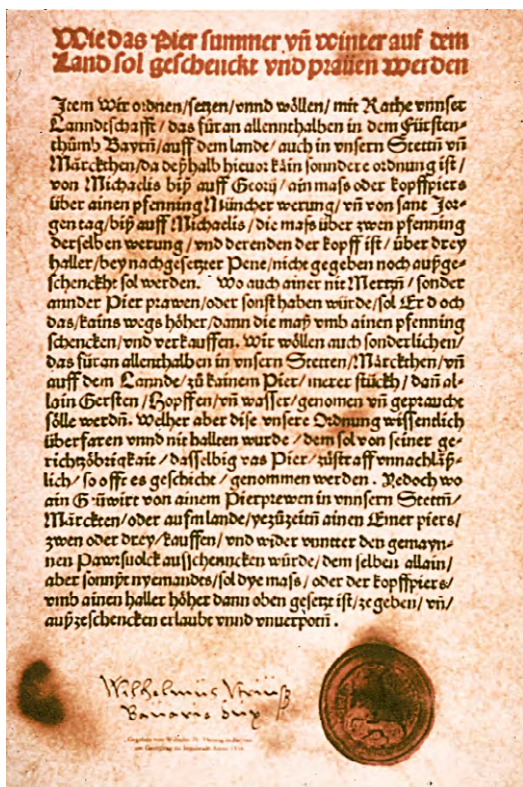 Wie das Pier summer vñ winter auf dem
Land sol geschenckt vnd prauen werden
Item Wir ordnen/setzen/vnnd wöllen/mit Rathe vnnser
Lanndeschafft/das für an allennthalben in dem Fürsten-
thůmb Bayrñ/auff dem lande/auch in vnsern Stettñ vñ
Märckthen/da deßhalb hieuor kain sonndere ordnung ist/
von Michaelis biß auff Georij/ain mass oder kopffpiers
über ainen pfenning Müncher werung/vñ von sant Jor-
gen tag/biß auff Michaelis/die mass über zwen pfenning
derselben werung/vnd derenden der kopff ist/über drey
haller/bey nachgesetzter Pene/nicht gegeben noch außge-
schenckht sol werden. Wo auch ainer nit Mertzñ/sonder
annder Pier prawen/oder sonst haben würde/sol Er doch
das/kains wegs höher/dann die maß vmb ainen pfenning
schencken/vnd verkauffen. Wir wöllen auch sonderlichen/
das für an allenthalben in vnsern Stetten/Märckthen/vñ
auff dem Lannde/zů kainem Pier/merer stückh/dañ al-
lain Gersten/Hopffen/vñ wasser/genomen vñ geprauche
sölle werdñ. Welher aber dise vnsere Ordnung wissendlich
überfaren vnnd nit hallten wurde/dem sol von seiner ge-
richtzöbrigkait/dasselbig vas Pier/zůstraff vnnachläß-
lich/so offt es geschicht/genommen werden. Yedoch wo
ain Güwirt von ainem Pierprewen in vnnsern Stettñ/
Märckten/oder aufm lande/yezůzeitñ ainen Emer piers/
zwen oder drey/kauffen/vnd wider vnntter den gemayn-
nen Pawrsuolck ausschenncken würde/dem selben allain/
aber sonnßt nyemandes/sol dye mass/oder der kopffpiers/
vmb ainen haller höher dann oben gesetzt ist/ze geben/vñ/
außzeschencken erlaubt vnnd vnuerpotñ.
Wilhelmus
Bavarie Dux